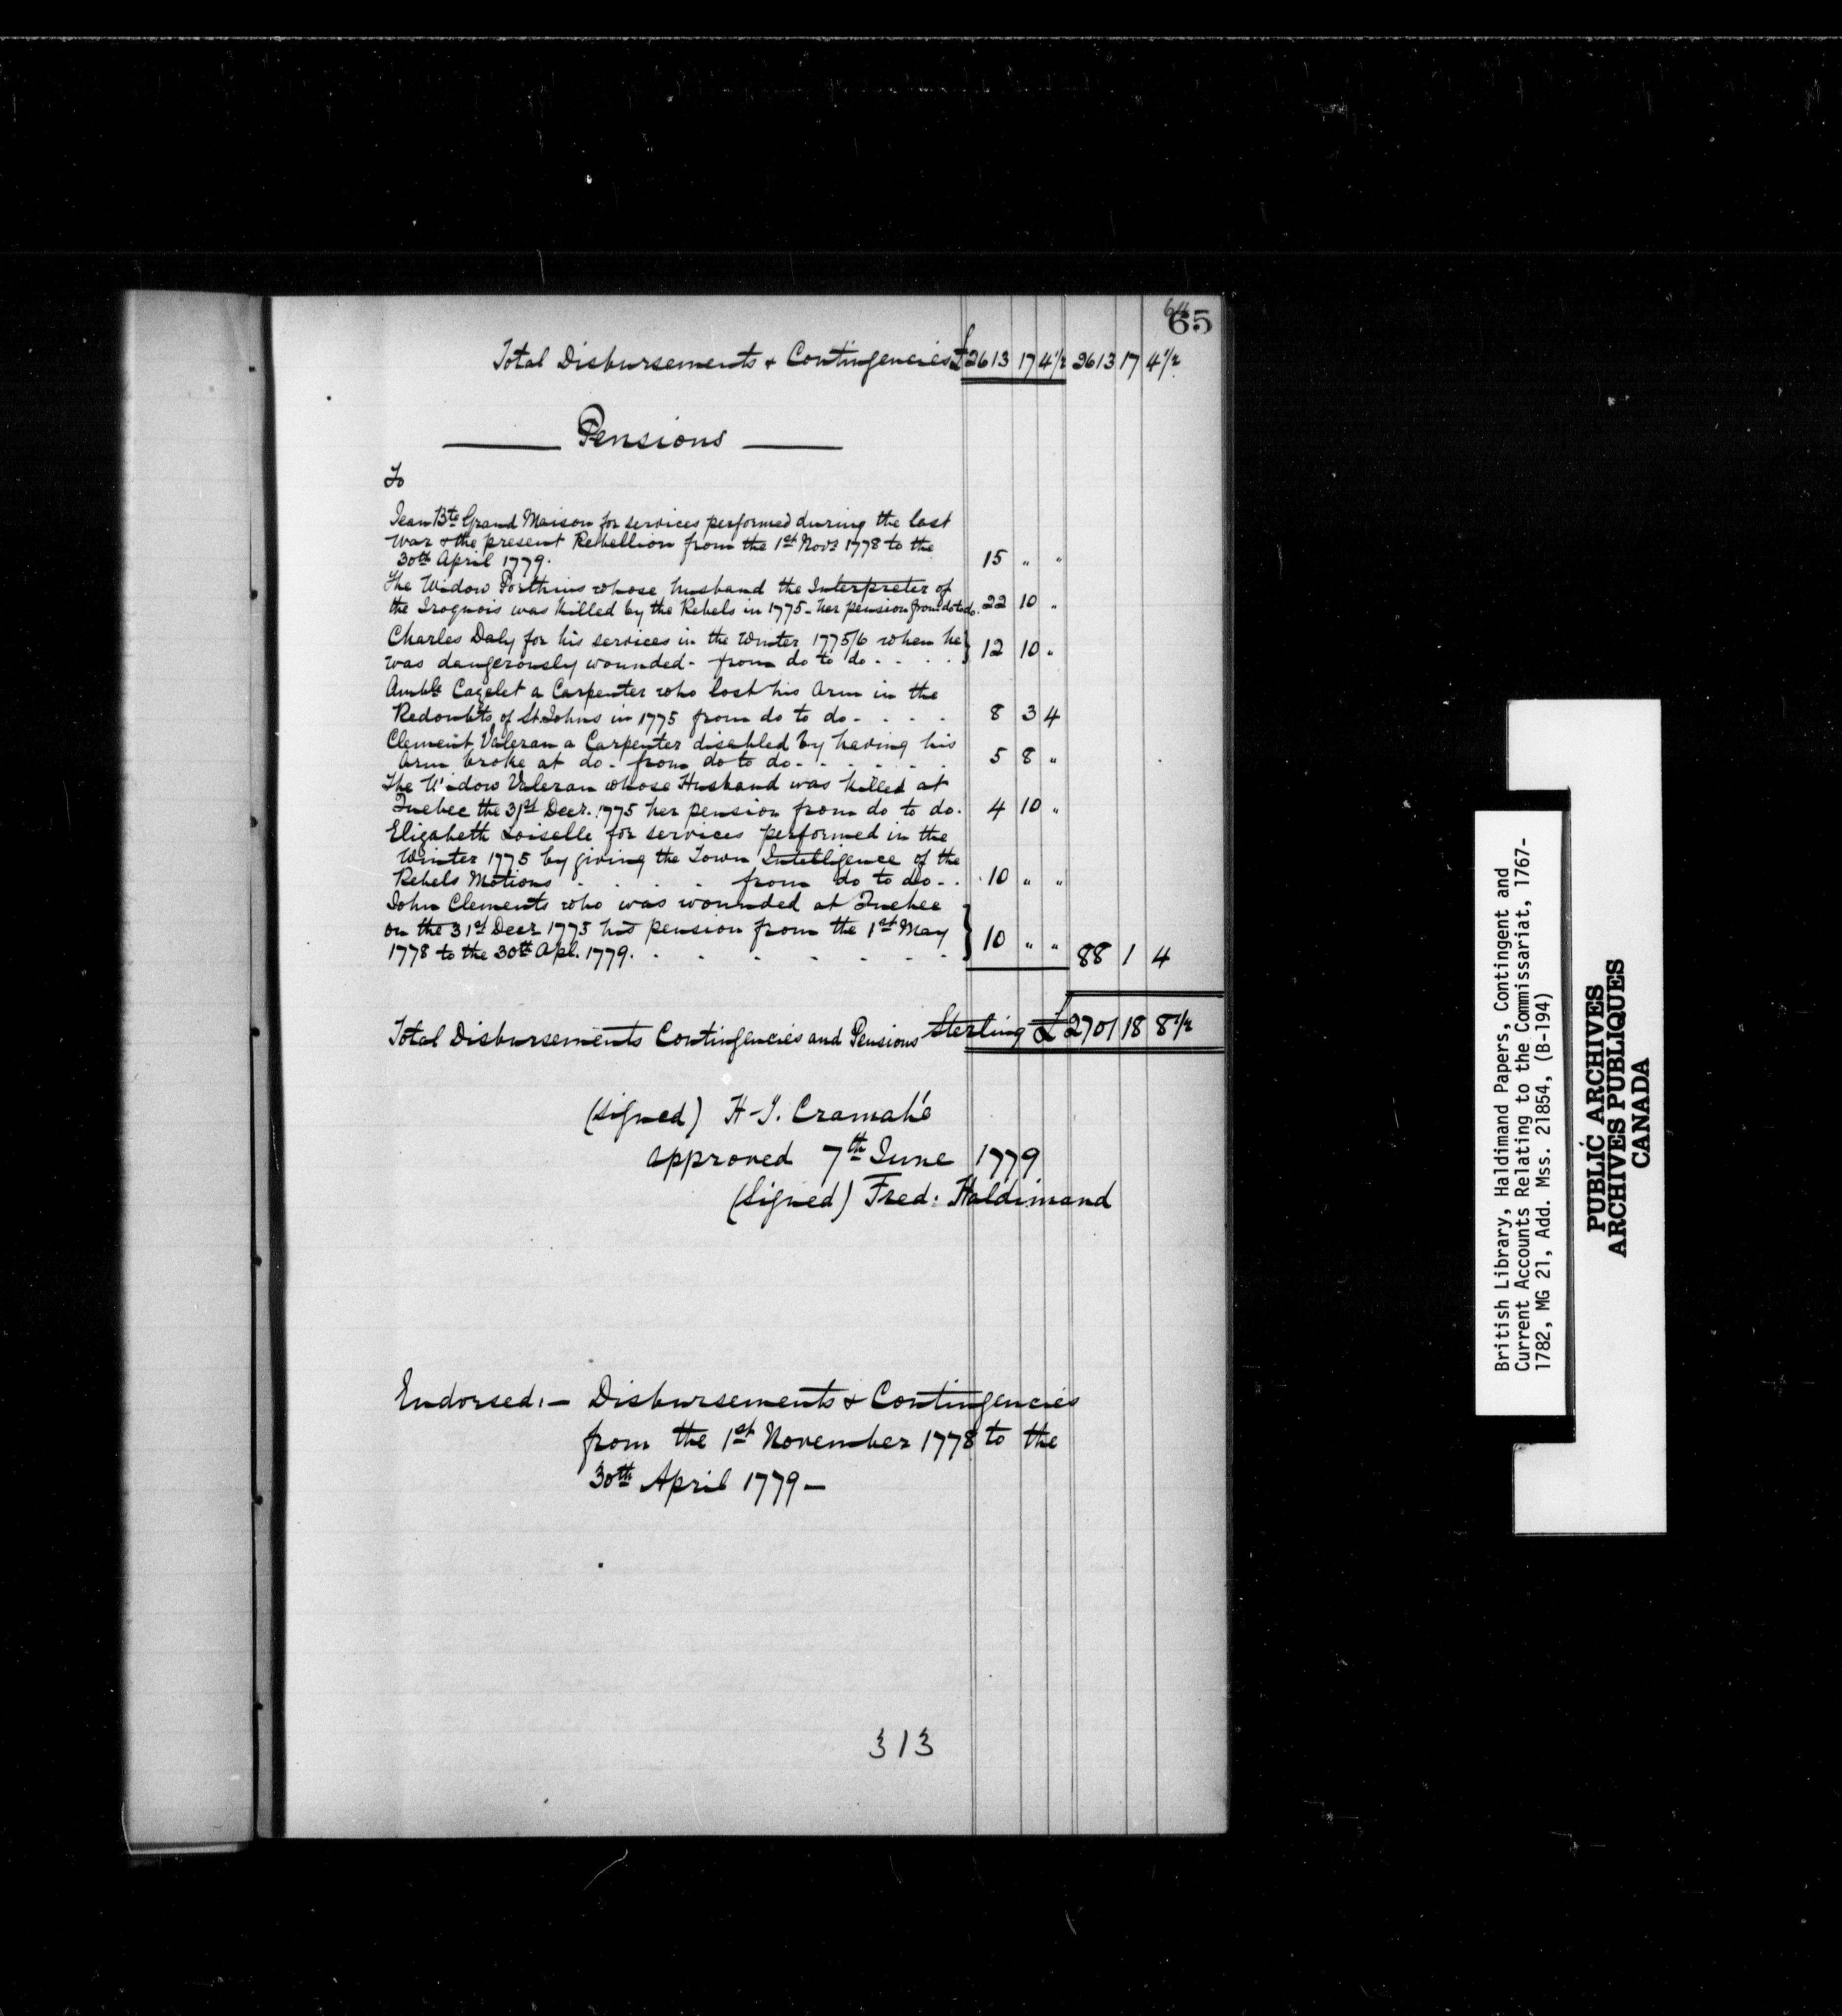 65
Total Disbursements & Contingencies £ 2613 17 4½ 2613 17 4½
Pensions
To
Jean Bte Grand Maison for services performed during the last
War & the present Rebellion from the 1st Novr 1778 to the
30th April 1779. 15 " "
The Widow whose husband the Interpreter of
the Iroquois was killed by the Rebels in 1775 - her pension from do to do. 22 10 "
Charles Daly for his services in the Winter 1775/6 when he
was dangerously wounded - from do to do - - - - 12 10 "
Ambls Cazelet a Carpenter who lost his Arm in the
Redoubts of St Johns in 1775 from do to do - - - - 8 3 4
Clement Valeran a Carpenter disabled by having his
Arm broke at do - from do to do - - - - - - 5 8 "
The Widow Valeran whose Husband was killed at
Quebec the 31st Decr. 1775 her pension from do to do. 4 10 "
Elizabeth Loiselle for services performed in the
Winter 1775 by giving the Town Intelligence of the
Rebels Motions - - - - from do to do - - 10 " "
John Clements who was wounded at Quebec
on the 31st Decr 1775 his pension from the 1st May
1778 to the 30th Apl. 1779. - - - - - - - 10 " " 88 1 4
Total Disbursements Contingencies and Pensions Sterling £ 2701 18 8½
(signed) H-T. Cramahé
approved 7th June 1779
(Signed) Fred: Haldimand
Endorsed:— Disbursements & Contingencies
from the 1st November 1778 to the
30th April 1779 —
313
British Library, Haldimand Papers, Contingent and
Current Accounts Relating to the Commissariat, 1767-
1782, MG 21, Add. Mss. 21854, (B-194)
PUBLIC ARCHIVES
ARCHIVES PUBLIQUES
CANADA